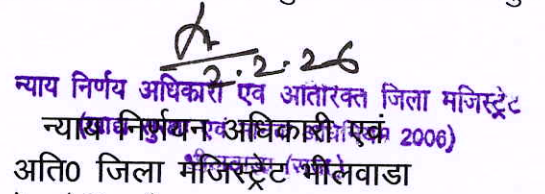 2.2.26
न्याय निर्णय अधिकारी एवं अतिरिक्त जिला मजिस्ट्रेट
न्याय निर्णयन अधिकारी एवं 2006)
अति0 जिला मजिस्ट्रेट भीलवाडा